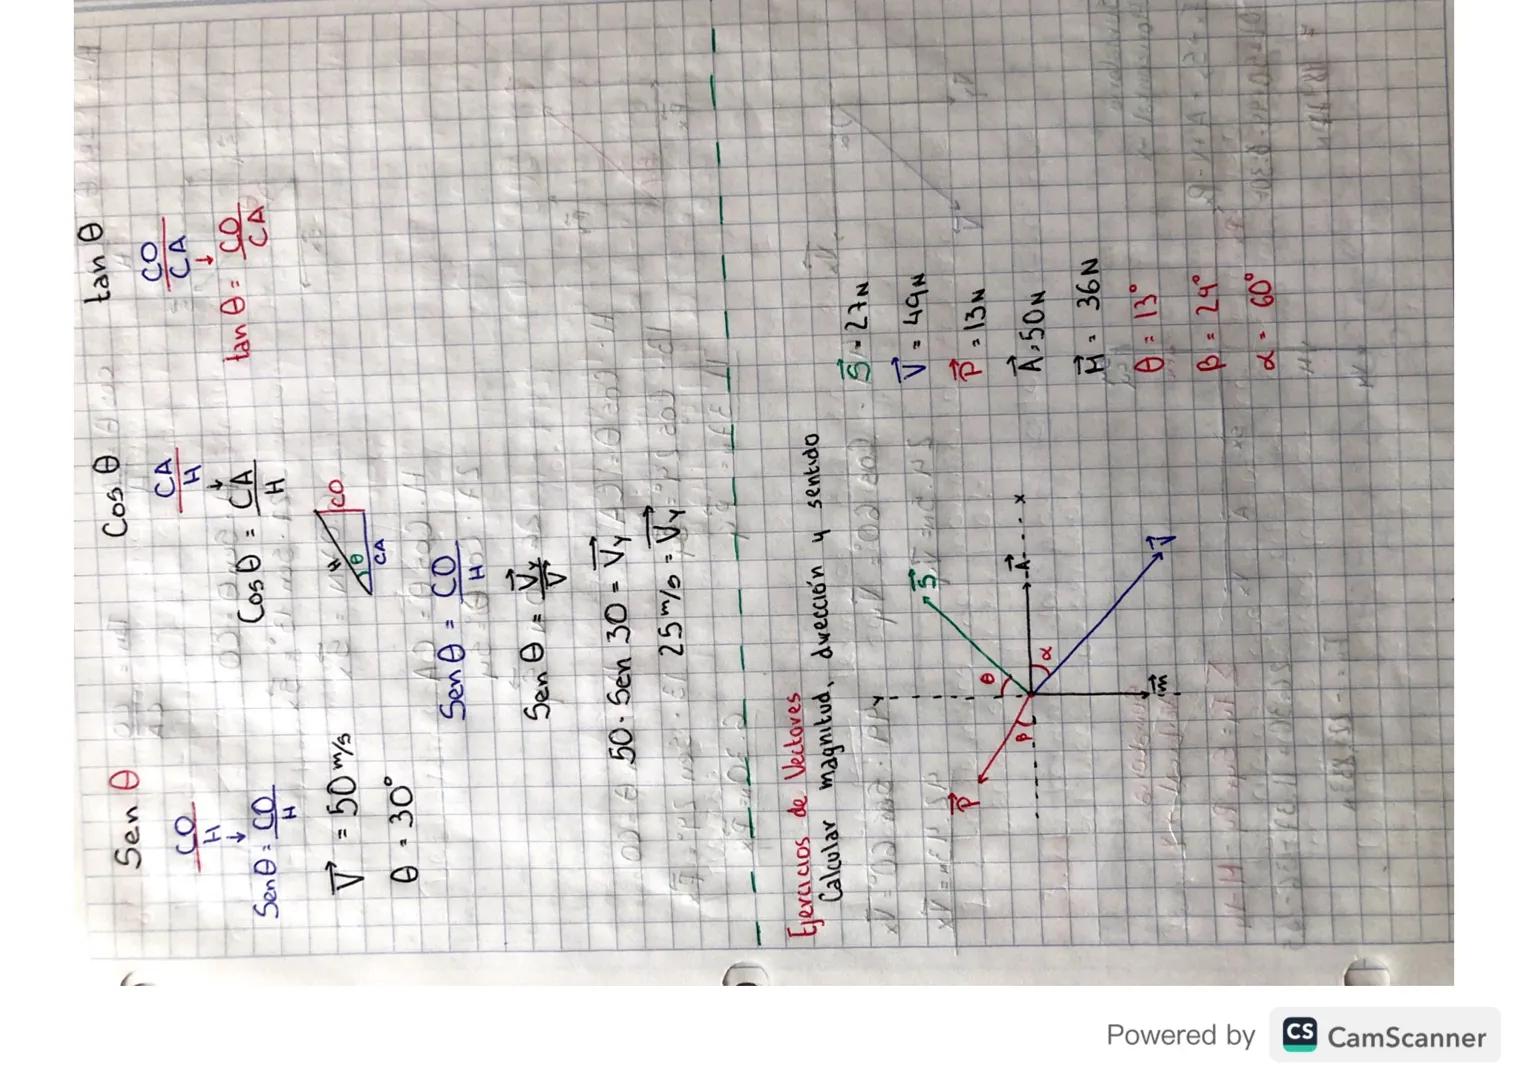 Sen θ Cos θ tan θ
CO/H CA/H CO/CA
Sen θ = CO/H Cos θ = CA/H tan θ = CO/CA
V⃗ = 50 m/s
θ = 30°
H θ CO
CA
Sen θ = CO/H
Sen θ = V⃗y/V⃗
50 · Sen 30 = V⃗y
25 m/s = V⃗y
Ejercicios de Vectores
Calcular magnitud, dirección y sentido
y
S⃗
θ
P⃗
β
A⃗
x
α
m⃗
V⃗
S⃗ = 27 N
V⃗ = 49 N
P⃗ = 13 N
A⃗ = 50 N
M⃗ = 36 N
θ = 13°
β = 29°
α = 60°
Powered by CS CamScanner